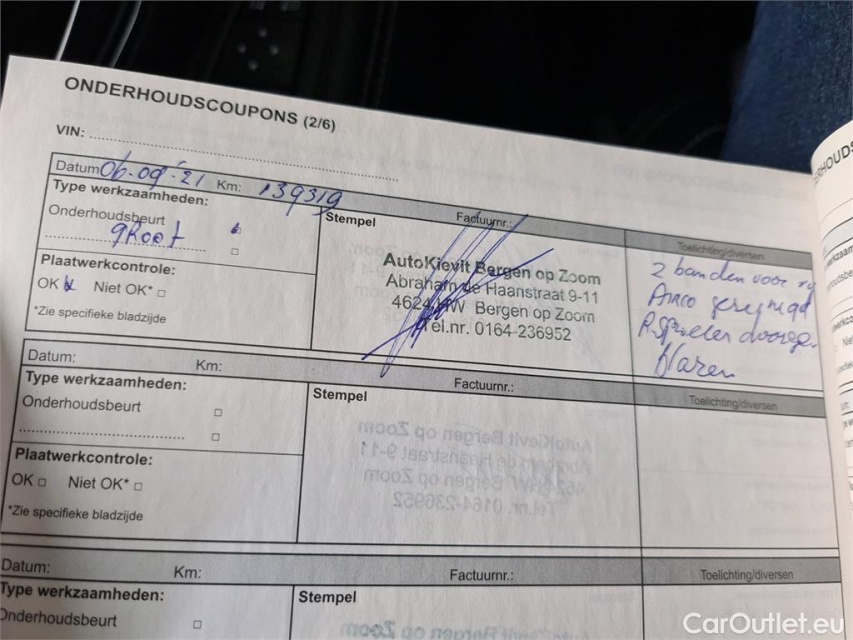 ONDERHOUDSCOUPONS (2/6)
VIN:
Datum 06-09-'21 Km: 139319 Factuurnr.: Toelichting/diversen
Type werkzaamheden:
Onderhoudsbeurt
groot
Plaatwerkcontrole:
OK Niet OK*
*Zie specifieke bladzijde
Stempel
AutoKievit Bergen op Zoom
Abraham de Haanstraat 9-11
4624 HW Bergen op Zoom
Tel.nr. 0164-236952
2 banden voor
Airco gereinigd
R.sproeier
blazen
Datum: Km: Factuurnr.: Toelichting/diversen
Type werkzaamheden:
Onderhoudsbeurt
Plaatwerkcontrole:
OK Niet OK*
*Zie specifieke bladzijde
Stempel
Datum: Km: Factuurnr.: Toelichting/diversen
Type werkzaamheden:
Onderhoudsbeurt
Stempel
CarOutlet.eu